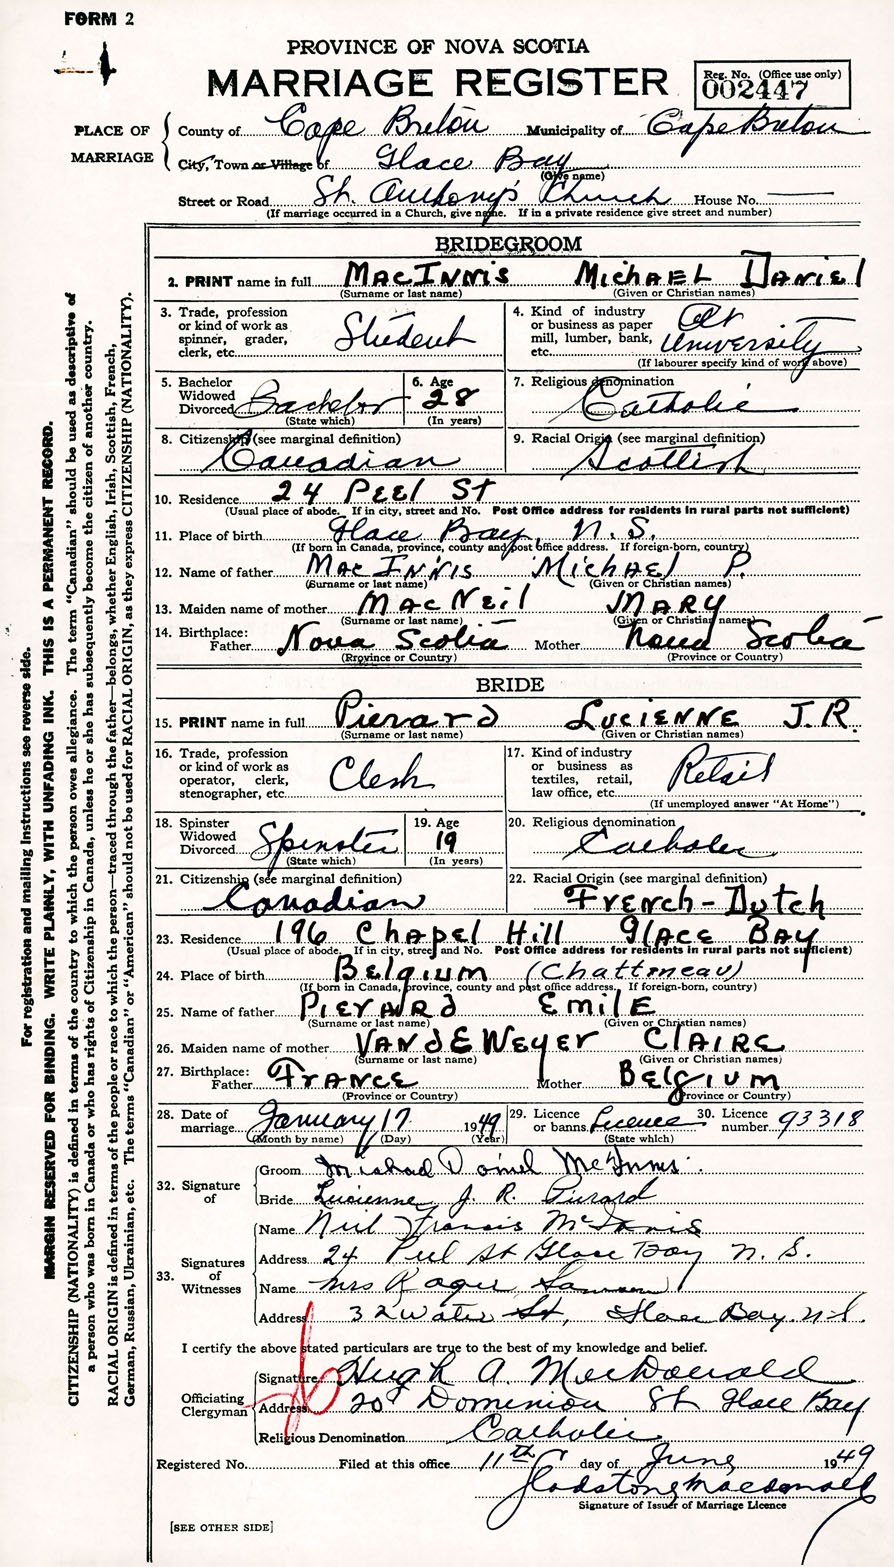 FORM 2
PROVINCE OF NOVA SCOTIA
MARRIAGE REGISTER
Reg. No. (Office use only)
002447
PLACE OF MARRIAGE
County of Cape Breton Municipality of Cape Breton
City, Town or Village of Glace Bay
(Give name)
Street or Road St. Anthony's Church House No.
(If marriage occurred in a Church, give name. If in a private residence give street and number)
BRIDEGROOM
2. PRINT name in full MacInnis Michael Daniel
(Surname or last name) (Given or Christian names)
3. Trade, profession or kind of work as spinner, grader, clerk, etc. Student
4. Kind of industry or business as paper mill, lumber, bank, etc. At University
(If labourer specify kind of work above)
5. Bachelor Widowed Divorced Bachelor
(State which)
6. Age 28
(In years)
7. Religious denomination Catholic
8. Citizenship (see marginal definition) Canadian
9. Racial Origin (see marginal definition) Scottish
10. Residence 24 Peel St
(Usual place of abode. If in city, street and No. Post Office address for residents in rural parts not sufficient)
11. Place of birth Glace Bay, N.S.
(If born in Canada, province, county and post office address. If foreign-born, country)
12. Name of father MacInnis Michael P.
(Surname or last name) (Given or Christian names)
13. Maiden name of mother MacNeil Mary
(Surname or last name) (Given or Christian names)
14. Birthplace: Father Nova Scotia Mother Nova Scotia
(Province or Country) (Province or Country)
BRIDE
15. PRINT name in full Pierard Lucienne J.R.
(Surname or last name) (Given or Christian names)
16. Trade, profession or kind of work as operator, clerk, stenographer, etc. Clerk
17. Kind of industry or business as textiles, retail, law office, etc. Retail
(If unemployed answer "At Home")
18. Spinster Widowed Divorced Spinster
(State which)
19. Age 19
(In years)
20. Religious denomination Catholic
21. Citizenship (see marginal definition) Canadian
22. Racial Origin (see marginal definition) French-Dutch
23. Residence 196 Chapel Hill Glace Bay
(Usual place of abode. If in city, street and No. Post Office address for residents in rural parts not sufficient)
24. Place of birth Belgium (Chattineau)
(If born in Canada, province, county and post office address. If foreign-born, country)
25. Name of father Pierard Emile
(Surname or last name) (Given or Christian names)
26. Maiden name of mother VandeWeyer Claire
(Surname or last name) (Given or Christian names)
27. Birthplace: Father France Mother Belgium
(Province or Country) (Province or Country)
28. Date of marriage January 17 1949
(Month by name) (Day) (Year)
29. Licence or banns Licence
(State which)
30. Licence number 93318
32. Signature of
Groom Michael Daniel McInnis
Bride Lucienne J. R. Pierard
33. Signatures of Witnesses
Name Neil Francis McInnis
Address 24 Peel St Glace Bay N. S.
Name Mrs Roger
Address 32 Water St, Glace Bay. N.S.
I certify the above stated particulars are true to the best of my knowledge and belief.
Officiating Clergyman
Signature Hugh A. MacDonald
Address 20 Dominion St Glace Bay
Religious Denomination Catholic
Registered No. Filed at this office 11th day of June 1949
Gladstone Macdonald
Signature of Issuer of Marriage Licence
[SEE OTHER SIDE]
For registration and mailing instructions see reverse side.
MARGIN RESERVED FOR BINDING. WRITE PLAINLY, WITH UNFADING INK. THIS IS A PERMANENT RECORD.
CITIZENSHIP (NATIONALITY) is defined in terms of the country to which the person owes allegiance. The term "Canadian" should be used as descriptive of
a person who was born in Canada or who has rights of Citizenship in Canada, unless he or she has subsequently become the citizen of another country.
RACIAL ORIGIN is defined in terms of the people or race to which the person—traced through the father—belongs, whether English, Irish, Scottish, French,
German, Russian, Ukrainian, etc. The terms "Canadian" or "American" should not be used for RACIAL ORIGIN, as they express CITIZENSHIP (NATIONALITY).